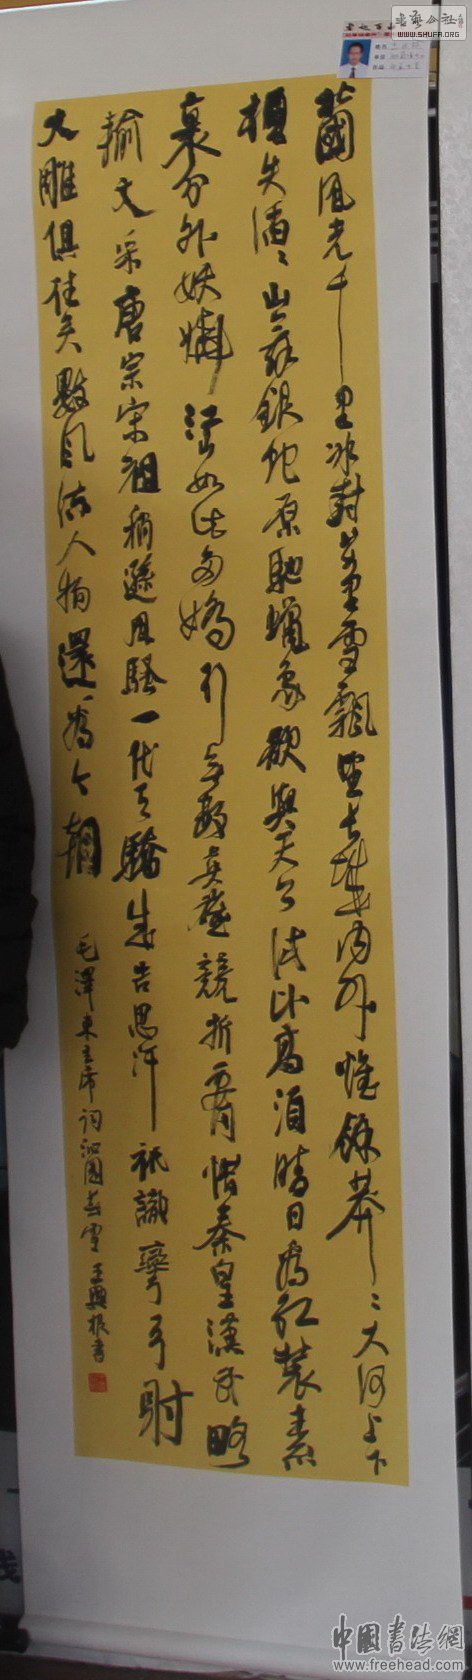 書藝公社
WWW.SHUFA.ORG
北國风光千里冰封万里雪飄望长城内外惟餘莽〻大河上下
頓失滔〻山舞銀蛇原馳蠟象欲與天公试比高須晴日為红裝素
裹分外妖嬈江山如此多嬌引无數英雄競折腰惜秦皇漢武略
輸文采唐宗宋祖稍遜风騷一代天驕成吉思汗祇識彎弓射
大雕俱往矣數风流人物還看今朝
毛澤東主席词沁園春雪 王興根書
中國書法網
www.freehead.com